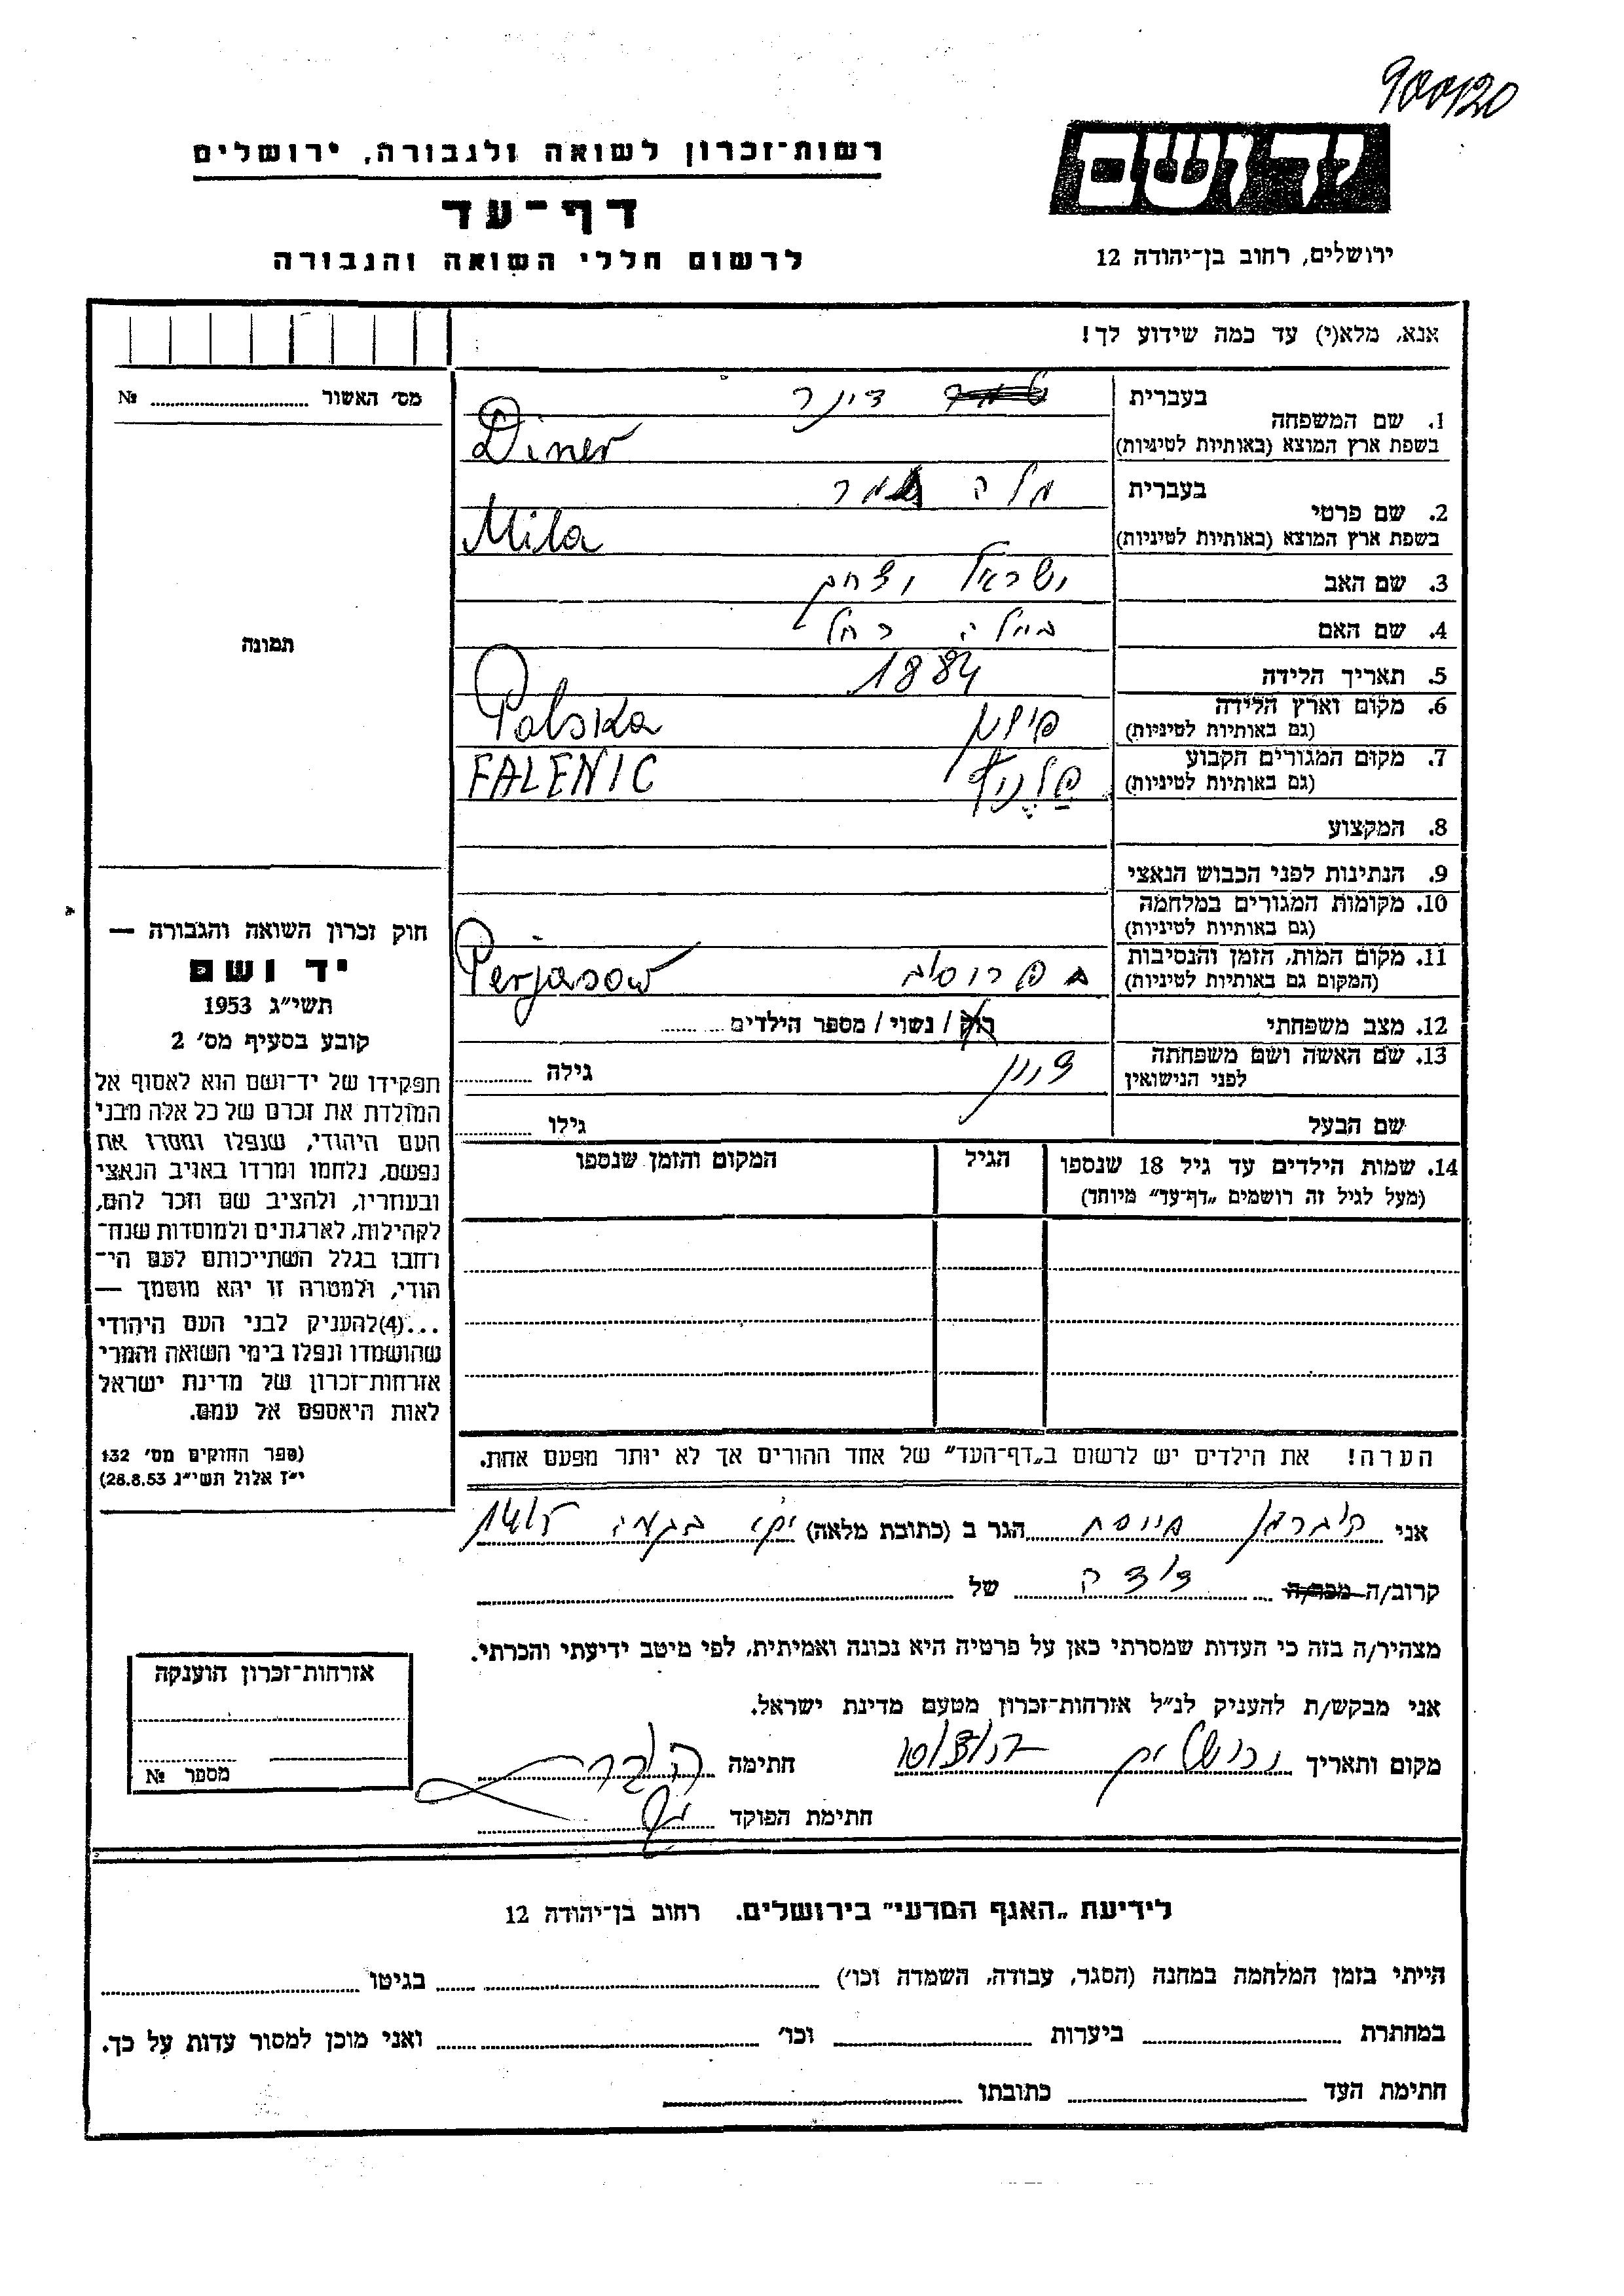 900120
רשות־זכרון לשואה ולגבורה, ירושלים
יד ושם
דף־עד
לרשום חללי השואה והגבורה
ירושלים, רחוב בן־יהודה 12
אנא, מלא(י) עד כמה שידוע לך!
מס׳ האשור № 
1. שם המשפחה
בעברית
דינר
בשפת ארץ המוצא (באותיות לטיניות)
Diner
2. שם פרטי
בעברית
מלה
בשפת ארץ המוצא (באותיות לטיניות)
Mila
3. שם האב
ישראל יצחק
4. שם האם
ביילה רחל
5. תאריך הלידה
1884
6. מקום וארץ הלידה
(גם באותיות לטיניות)
פולין
Polska
7. מקום המגורים הקבוע
(גם באותיות לטיניות)
FALENIC
8. המקצוע
9. הנתינות לפני הכבוש הנאצי
10. מקומות המגורים במלחמה
(גם באותיות לטיניות)
11. מקום המות, הזמן והנסיבות
(המקום גם באותיות לטיניות)
Perjasow
12. מצב משפחתי
רוק / נשוי / מספר הילדים
13. שם האשה ושם משפחתה
לפני הנישואין
גילה
שם הבעל
גילו
14. שמות הילדים עד גיל 18 שנספו
(מעל לגיל זה רושמים „דף־עד״ מיוחד)
הגיל
המקום והזמן שנספו
תמונה
חוק זכרון השואה והגבורה —
יד ושם
תשי״ג 1953
קובע בסעיף מס׳ 2
תפקידו של יד־ושם הוא לאסוף אל
המולדת את זכרם של כל אלה מבני
העם היהודי, שנפלו ומסרו את
נפשם, נלחמו ומרדו באויב הנאצי
ובעוזריו, ולהציב שם וזכר להם,
לקהילות, לארגונים ולמוסדות שנח־
רחבו בגלל השתייכותם לעם הי־
הודי, ולמטרה זו יהא מוסמך —
...(4)להעניק לבני העם היהודי
שהושמדו ונפלו בימי השואה והמרי
אזרחות־זכרון של מדינת ישראל
לאות היאספם אל עמם.
(ספר החוקים מס׳ 132
י״ז אלול תשי״ג 28.8.53)
הערה! את הילדים יש לרשום ב„דף־העד״ של אחד ההורים אך לא יותר מפעם אחת.
אני הגר ב (כתובת מלאה)
קרוב/ה מכר/ה של
מצהיר/ה בזה כי העדות שמסרתי כאן על פרטיה היא נכונה ואמיתית, לפי מיטב ידיעתי והכרתי.
אני מבקש/ת להעניק לנ״ל אזרחות־זכרון מטעם מדינת ישראל.
מקום ותאריך ירושלים חתימה
חתימת הפוקד
אזרחות־זכרון הוענקה
מספר №
לידיעת „האגף המדעי״ בירושלים. רחוב בן־יהודה 12
הייתי בזמן המלחמה במחנה (הסגר, עבודה, השמדה וכו׳) בגיטו
במחתרת ביערות וכו׳ ואני מוכן למסור עדות על כך.
חתימת העד כתובתו